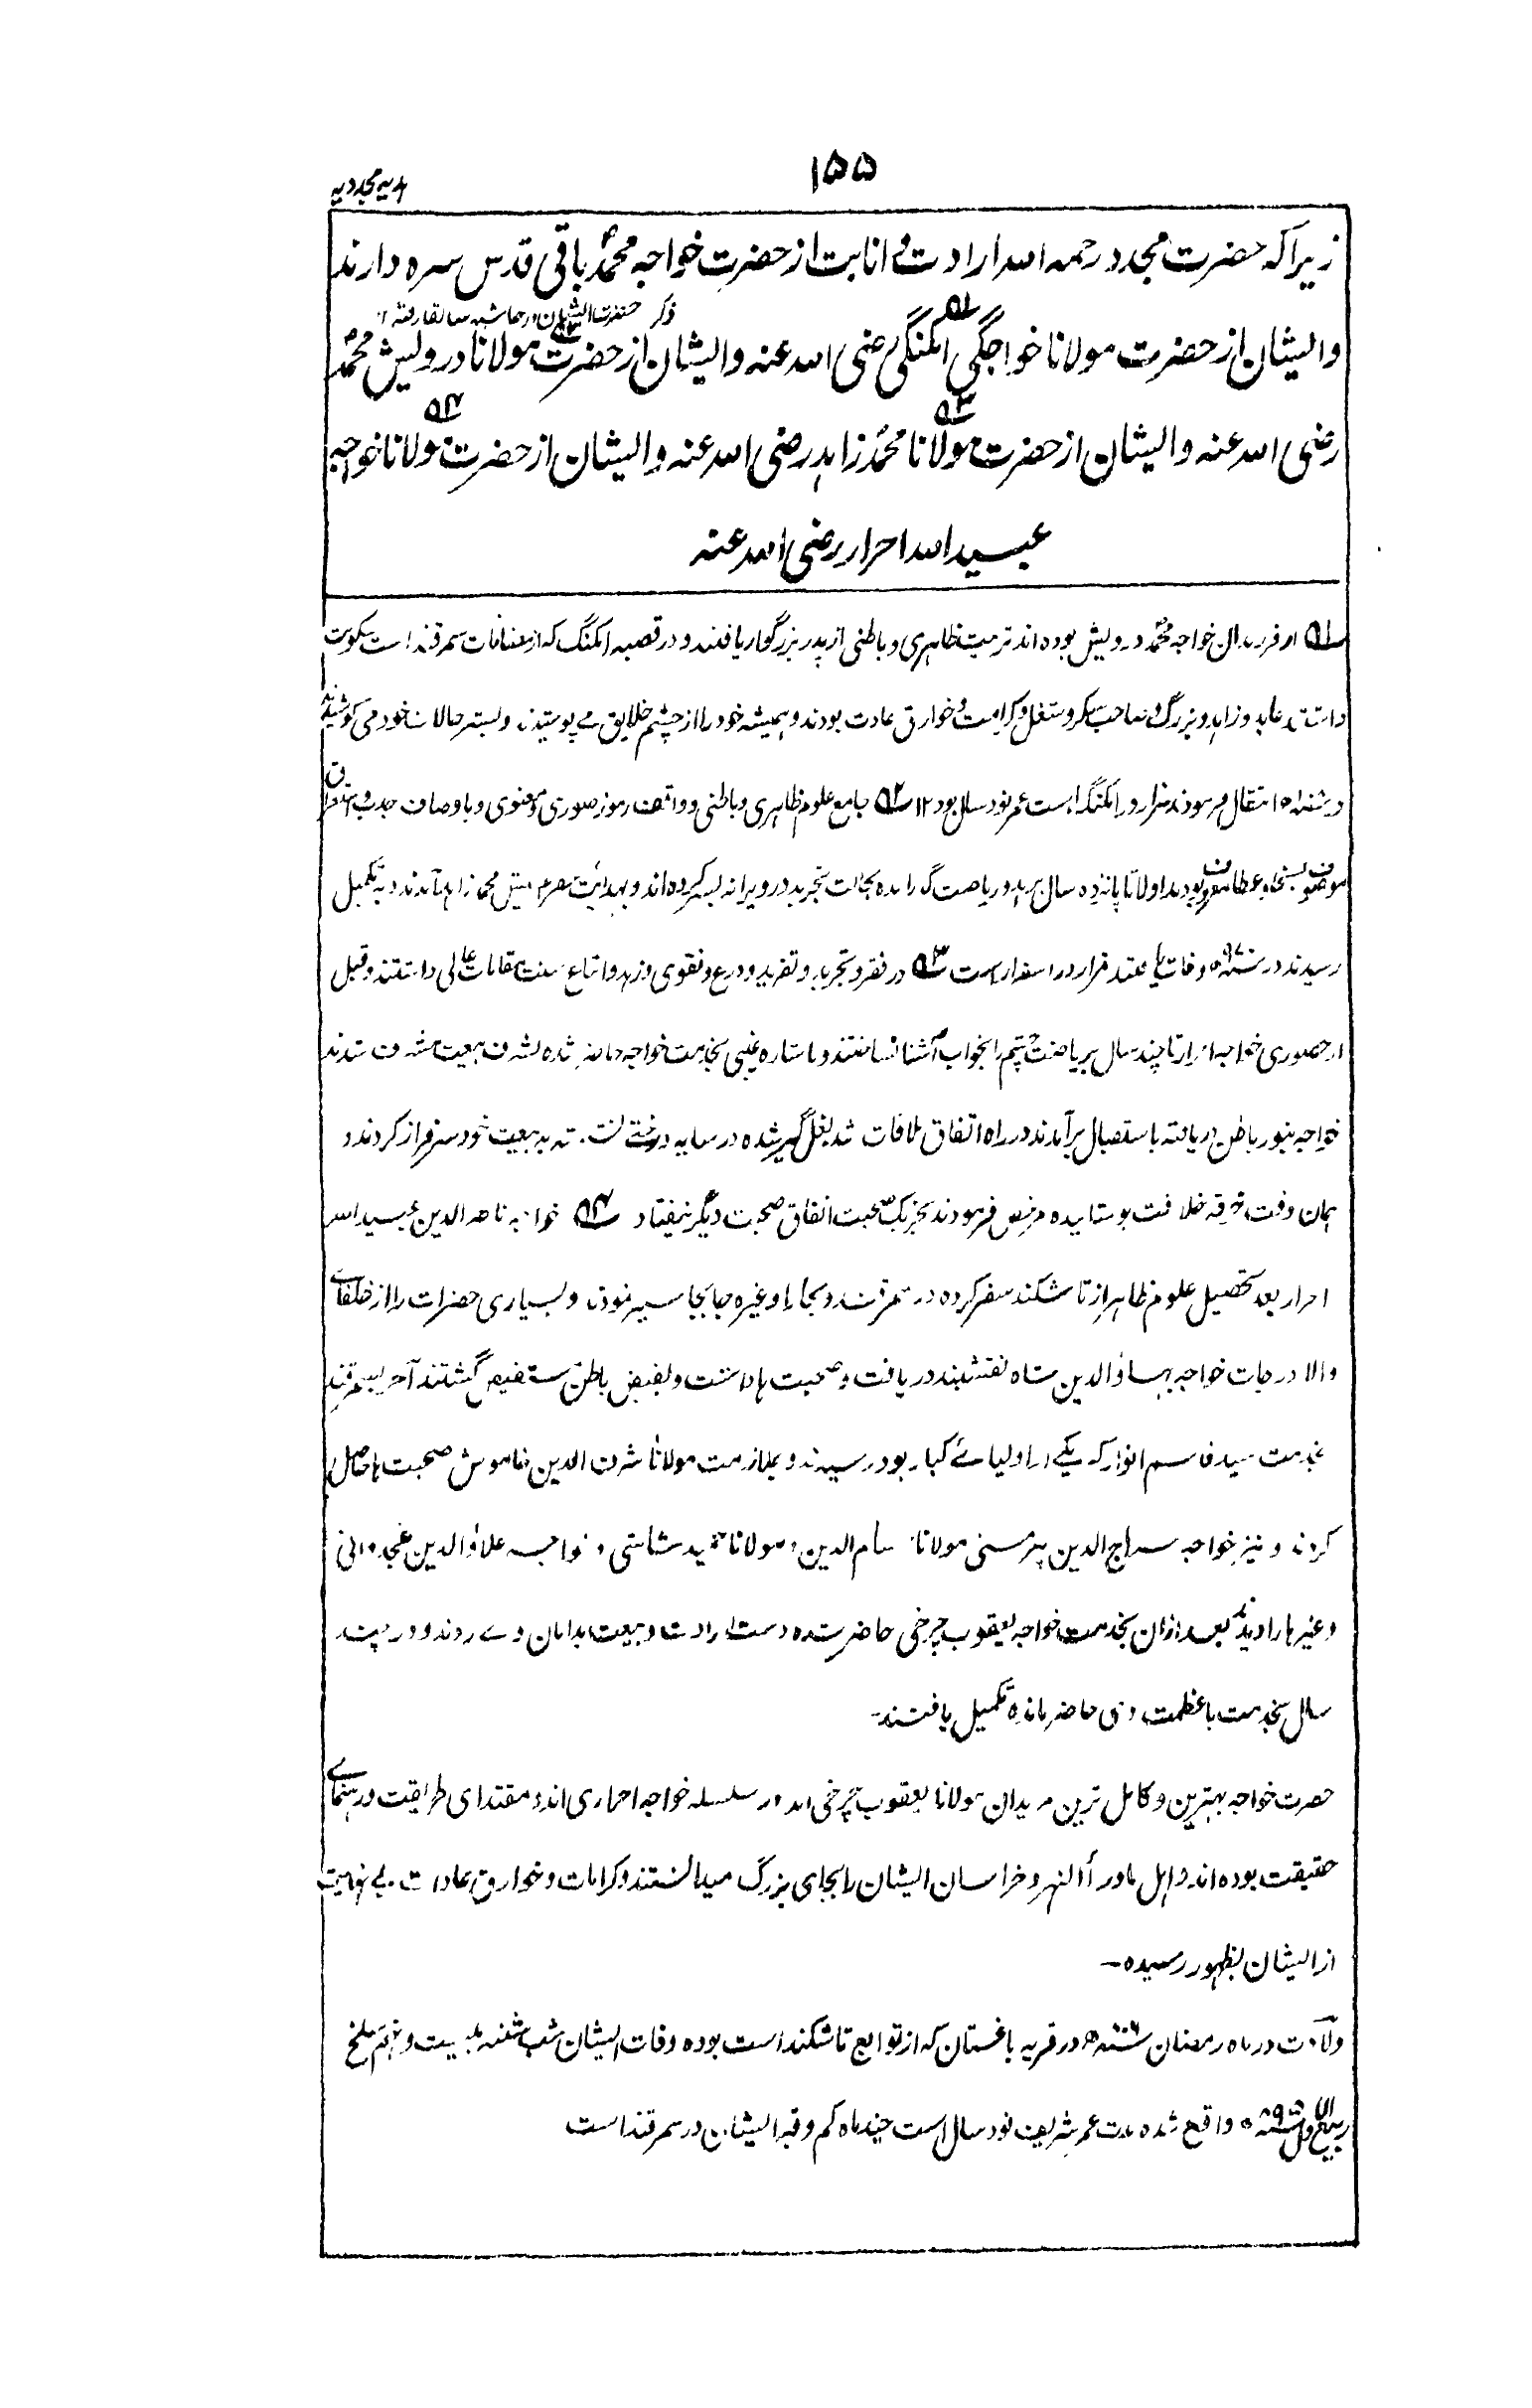 ۱۵۵
ہدیہ مجددیہ
زیراکہ حضرت مجدد رحمہ اللہ ارادت و انابت از حضرت خواجہ محمد باقی قدس سرہ دارند
ذکر حضرت ایشان در حاشیہ سابقا رفتہ ۱۲
و ایشان از حضرت مولانا خواجگی امکنگی رضی اللہ عنہ و ایشان از حضرت مولانا درویش محمد
رضی اللہ عنہ و ایشان از حضرت مولانا محمد زاہد رضی اللہ عنہ و ایشان از حضرت مولانا خواجہ
عبید اللہ احرار رضی اللہ عنہ
۵۱ از فرزندان خواجہ محمد درویش بودہ اند تربیت ظاہری و باطنی از پدر بزرگوار یافتند و در قصبہ امکنگ کہ از مضافات سمرقند است سکونت
داشتند عابد و زاہد و بزرگ و صاحب سکر و شغل و کرامت و خوارق عادت بودند و ہمیشہ خود را از چشم خلایق می پوشیدند و بستر حالات خود می کوشیدند
در انتقال فرمودند مزار در امکنگ است عمر نود سال بود ۱۲ ۵۲ جامع علوم ظاہری و باطنی و واقف رموز صوری و معنوی و باوصاف جذب و استغراق
موصوف بسخا و عطا معروف بودند اولا تا پانزدہ سال بزہد و ریاضت گذرانیدہ بحالت تجرید در ویرانہ بسر کردہ اند و بہدایت حضرت پیش محمد زاہد آمدند و بہ تکمیل
رسیدند در سنہ ۹۷۰ھ وفات یافتند مزار در اسفرار است ۵۳ در فقر و تجرید و تفرید و ورع و تقوی و زہد و اتباع سنت مقامات عالی داشتند و قبل
از حضوری خواجہ احرار تا چند سال بریاضت چشم را بخواب آشنا نساختند و باشارہ غیبی بخدمت خواجہ حاضر شدہ بشرف بیعت مشرف شدند
خواجہ بنور باطن دریافتہ باستقبال برآمدند در راہ اتفاق ملاقات شد بغل گیر شدہ در سایہ درختے نشستہ بہ بیعت خود سرفراز کردند و
ہمان وقت خرقہ خلافت پوشانیدہ مرخص فرمودند بجز یک صحبت اتفاق صحبت دیگر نیفتاد ۵۴ خواجہ ناصر الدین عبید اللہ
احرار بعد تحصیل علوم ظاہر از تاشکند سفر کردہ در سمرقند و بخارا وغیرہ جابجا سیر نمودند و بسیاری حضرات را از خلفائے
والا درجات خواجہ بہاؤ الدین شاہ نقشبند دریافت و صحبت ہا داشت و بفیض باطن مستفیض گشتند آخر بسمرقند
بخدمت سید قاسم انوار کہ یکے از اولیائے کبار بود رسیدند و بملازمت مولانا شرف الدین خاموش صحبت ہا حاصل
کردند و نیز خواجہ سراج الدین پرمسنی مولانا حسام الدین و مولانا حمید شاشی و خواجہ علاؤ الدین غجدوانی
وغیرہا را دیدند بعد ازان بخدمت خواجہ یعقوب چرخی حاضر شدہ دست ارادت و بیعت بدامان وے زدند و در چند
سال بخدمت باعظمت وی حاضر ماندہ تکمیل یافتند۔
حضرت خواجہ بہترین و کامل ترین مریدان مولانا یعقوب چرخی اند و سر سلسلہ خواجہ احراری اند و مقتدای طریقت و رہنمائے
حقیقت بودہ اند و اہل ماوراء النہر و خراسان ایشان را بجای بزرگ میدانستند و کرامات و خوارق عادات بے نہایت
از ایشان بظہور رسیدہ۔
ولادت در ماہ رمضان سنہ ۸۰۶ھ در قریہ باغستان کہ از توابع تاشکند است بودہ وفات ایشان شب شنبہ بیست و نہم سلخ
ربیع الاول سنہ ۸۹۵ھ واقع شدہ مدت عمر شریف نود سال است چند ماہ کم و قبر ایشان در سمرقند است